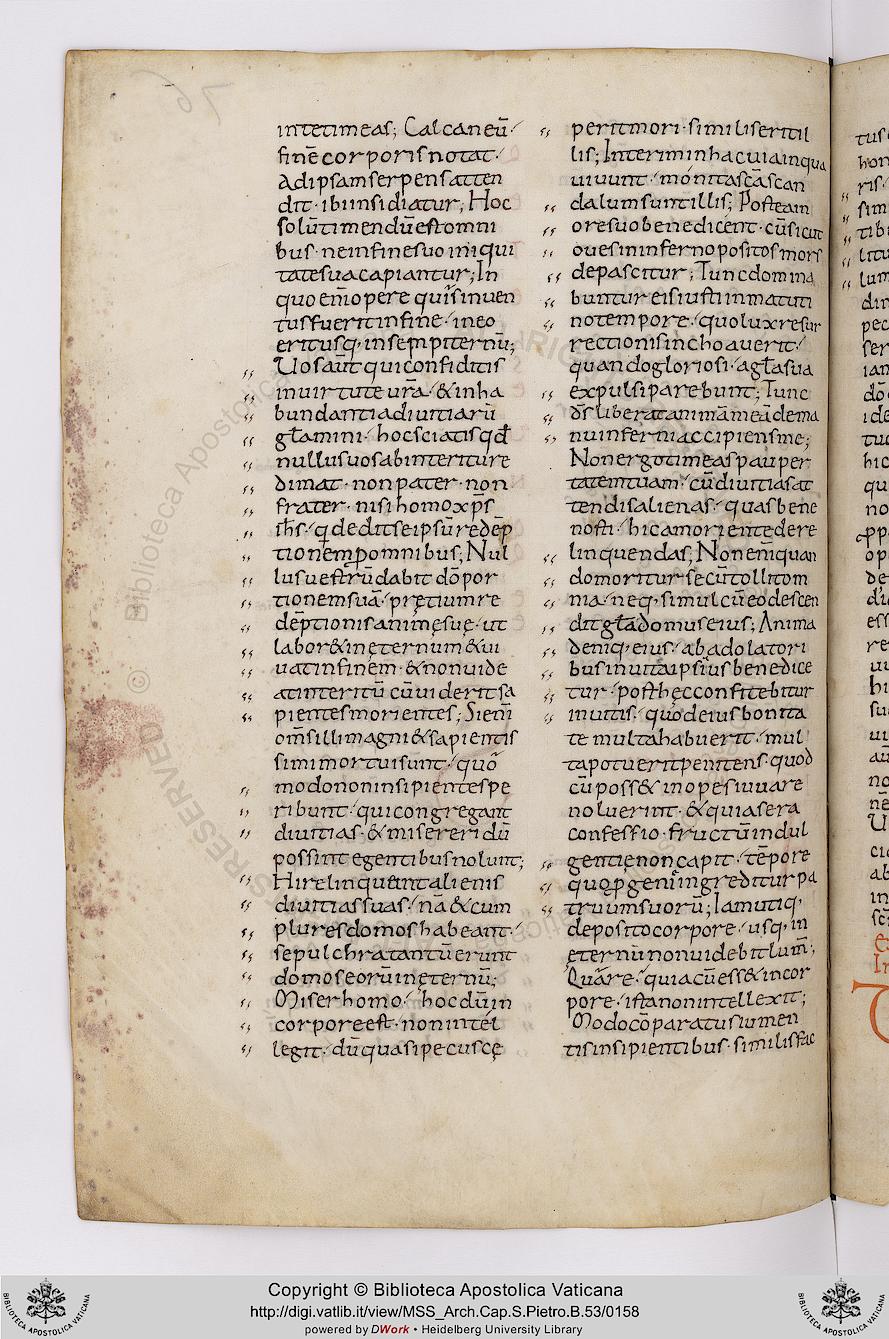 intetimeas; Calcaneū·
finē corporis notat·
Ad ipsam serpens atten
dit· ibi insidiatur; Hoc
solū timendū est omni
bus· ne in fine suo iniqui
tate sua capiantur; In
quo eni͞ opere quis inuen
tus fuerit in fine· in eo
erit usq; in sempiternū;
Uos aūt qui confiditis
in uirtute ur̄a· & in ha
bundantia diuitiarū
gl̄amini· hoc sciatis qd̄
nullus uos ab interitu re
dimat· non pater· non
frater· nisi homo xp̄s
ih̄s· q̄ dedit se ipsū redēp
tionem ꝓ omnibus; Nul
lus uestrū dabit dō por
tionem suā· prętium re
dēptionis animę suę· ut
labor& in ęternum & ui
uat in finem· & non uide
at interitū cū uiderit sa
pientes morientes; Si eni͞
om̄s illi magni & sapientis
simi mortui sunt· quō
modo non insipientes pe
ribunt· qui congregant
diuitias· & misereri dū
possint egentibus nolunt;
Hi relinquunt alienis
diuitias suas· nā & cum
plures domos habeant·
sepulchra tantū erunt
domos eorū in ęternū;
Miser homo· hoc dū in
corpore est· non intel
legit· dū quasi pecus cę
perit mori· similis erit il
lis; Interim in hac uia in qua
uiuunt· monita sc̄a scan
dalum sunt illis; Postea in
ore suo benedicent· cū sicut
oues in inferno positos mors
depascitur; Tunc domina
buntur eis iusti in matuti
no tempore· quo lux resur
rectionis inchoauerit·
quando gloriosi· a gl̄a sua
expulsi parebunt; Tunc
ds̄ liberat animā meā de ma
nu inferni accipiens me;
Non ergo timeas pauper
tatem tuam· cū diuitias at
tendis alienas· quas bene
nosti· hic a moriente dere
linquendas; Non eni͞ quan
do moritur secū tollit om
nia· neq; simul cū eo descen
dit gl̄a domus eius; Anima
deniq; eius· ab adolatori
bus in uita ipsius benedice
tur· post hęc confitebitur
inuitis· quod eius bonita
te multa habuerit· mul
ta potuerit penitens· quod
cū poss& inopes iuuare
noluerint· & quia sera
confessio· fructū indul
gentię non capit· tēpore
quo ꝓgeni͞ ingreditur pa
truum suorū; Iam utiq;
deposito corpore· usq; in
ęternū non uidebit lum̄;
Quare· quia cū ess& in cor
pore· ista non intellexit;
Modo cōparatus iumen
tis insipientibus· similis fac
Copyright © Biblioteca Apostolica Vaticana
http://digi.vatlib.it/view/MSS_Arch.Cap.S.Pietro.B.53/0158
powered by DWork • Heidelberg University Library